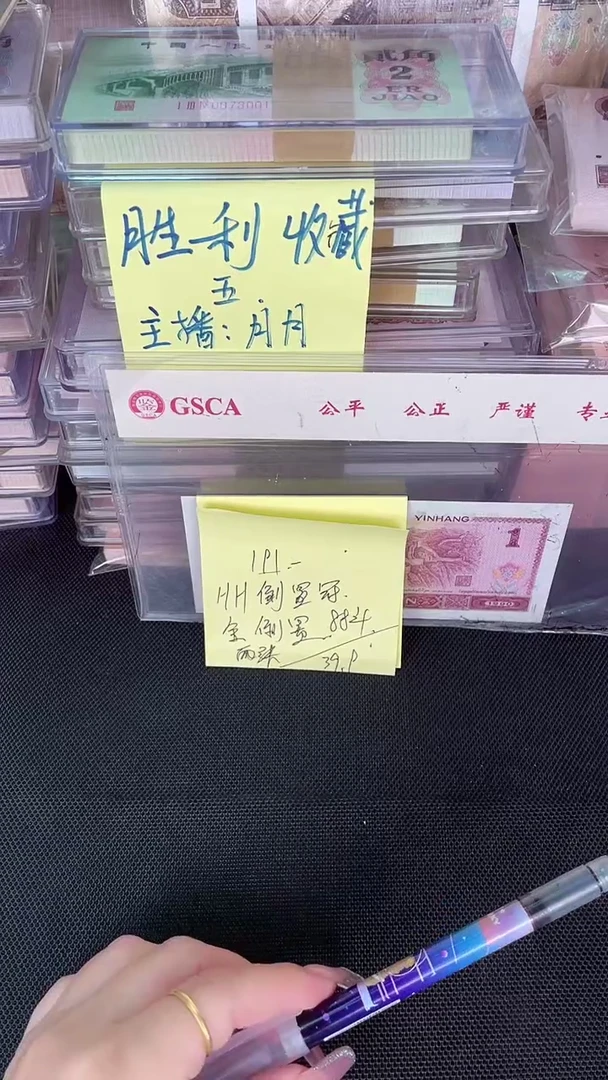 中国人民
贰角
2
ER JIAO
胜利 收藏
五.
主播: 月月
GSCA 公平 公正 严谨 专
YINHANG
1
1980
HH 倒置冠.
全倒置. 884.
两张
39.9